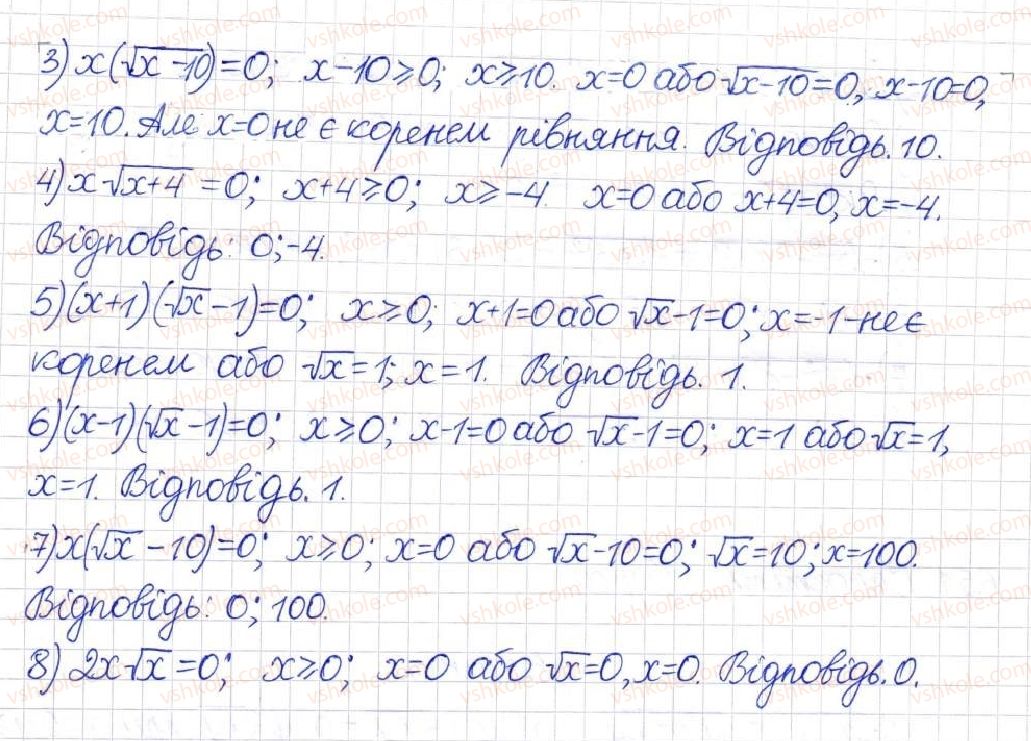 3) x(√x-10)=0; x-10⩾0; x⩾10. x=0 або √x-10=0, x-10=0,
x=10. Але x=0 не є коренем рівняння. Відповідь. 10.
4) x√x+4=0; x+4⩾0; x⩾-4. x=0 або x+4=0, x=-4.
Відповідь: 0; -4.
5) (x+1)(√x-1)=0; x⩾0; x+1=0 або √x-1=0; x=-1-не є
коренем або √x=1; x=1. Відповідь. 1.
6) (x-1)(√x-1)=0; x⩾0; x-1=0 або √x-1=0; x=1 або √x=1,
x=1. Відповідь. 1.
7) x(√x-10)=0; x⩾0; x=0 або √x-10=0; √x=10; x=100.
Відповідь: 0; 100.
8) 2x√x=0; x⩾0; x=0 або √x=0, x=0. Відповідь. 0.